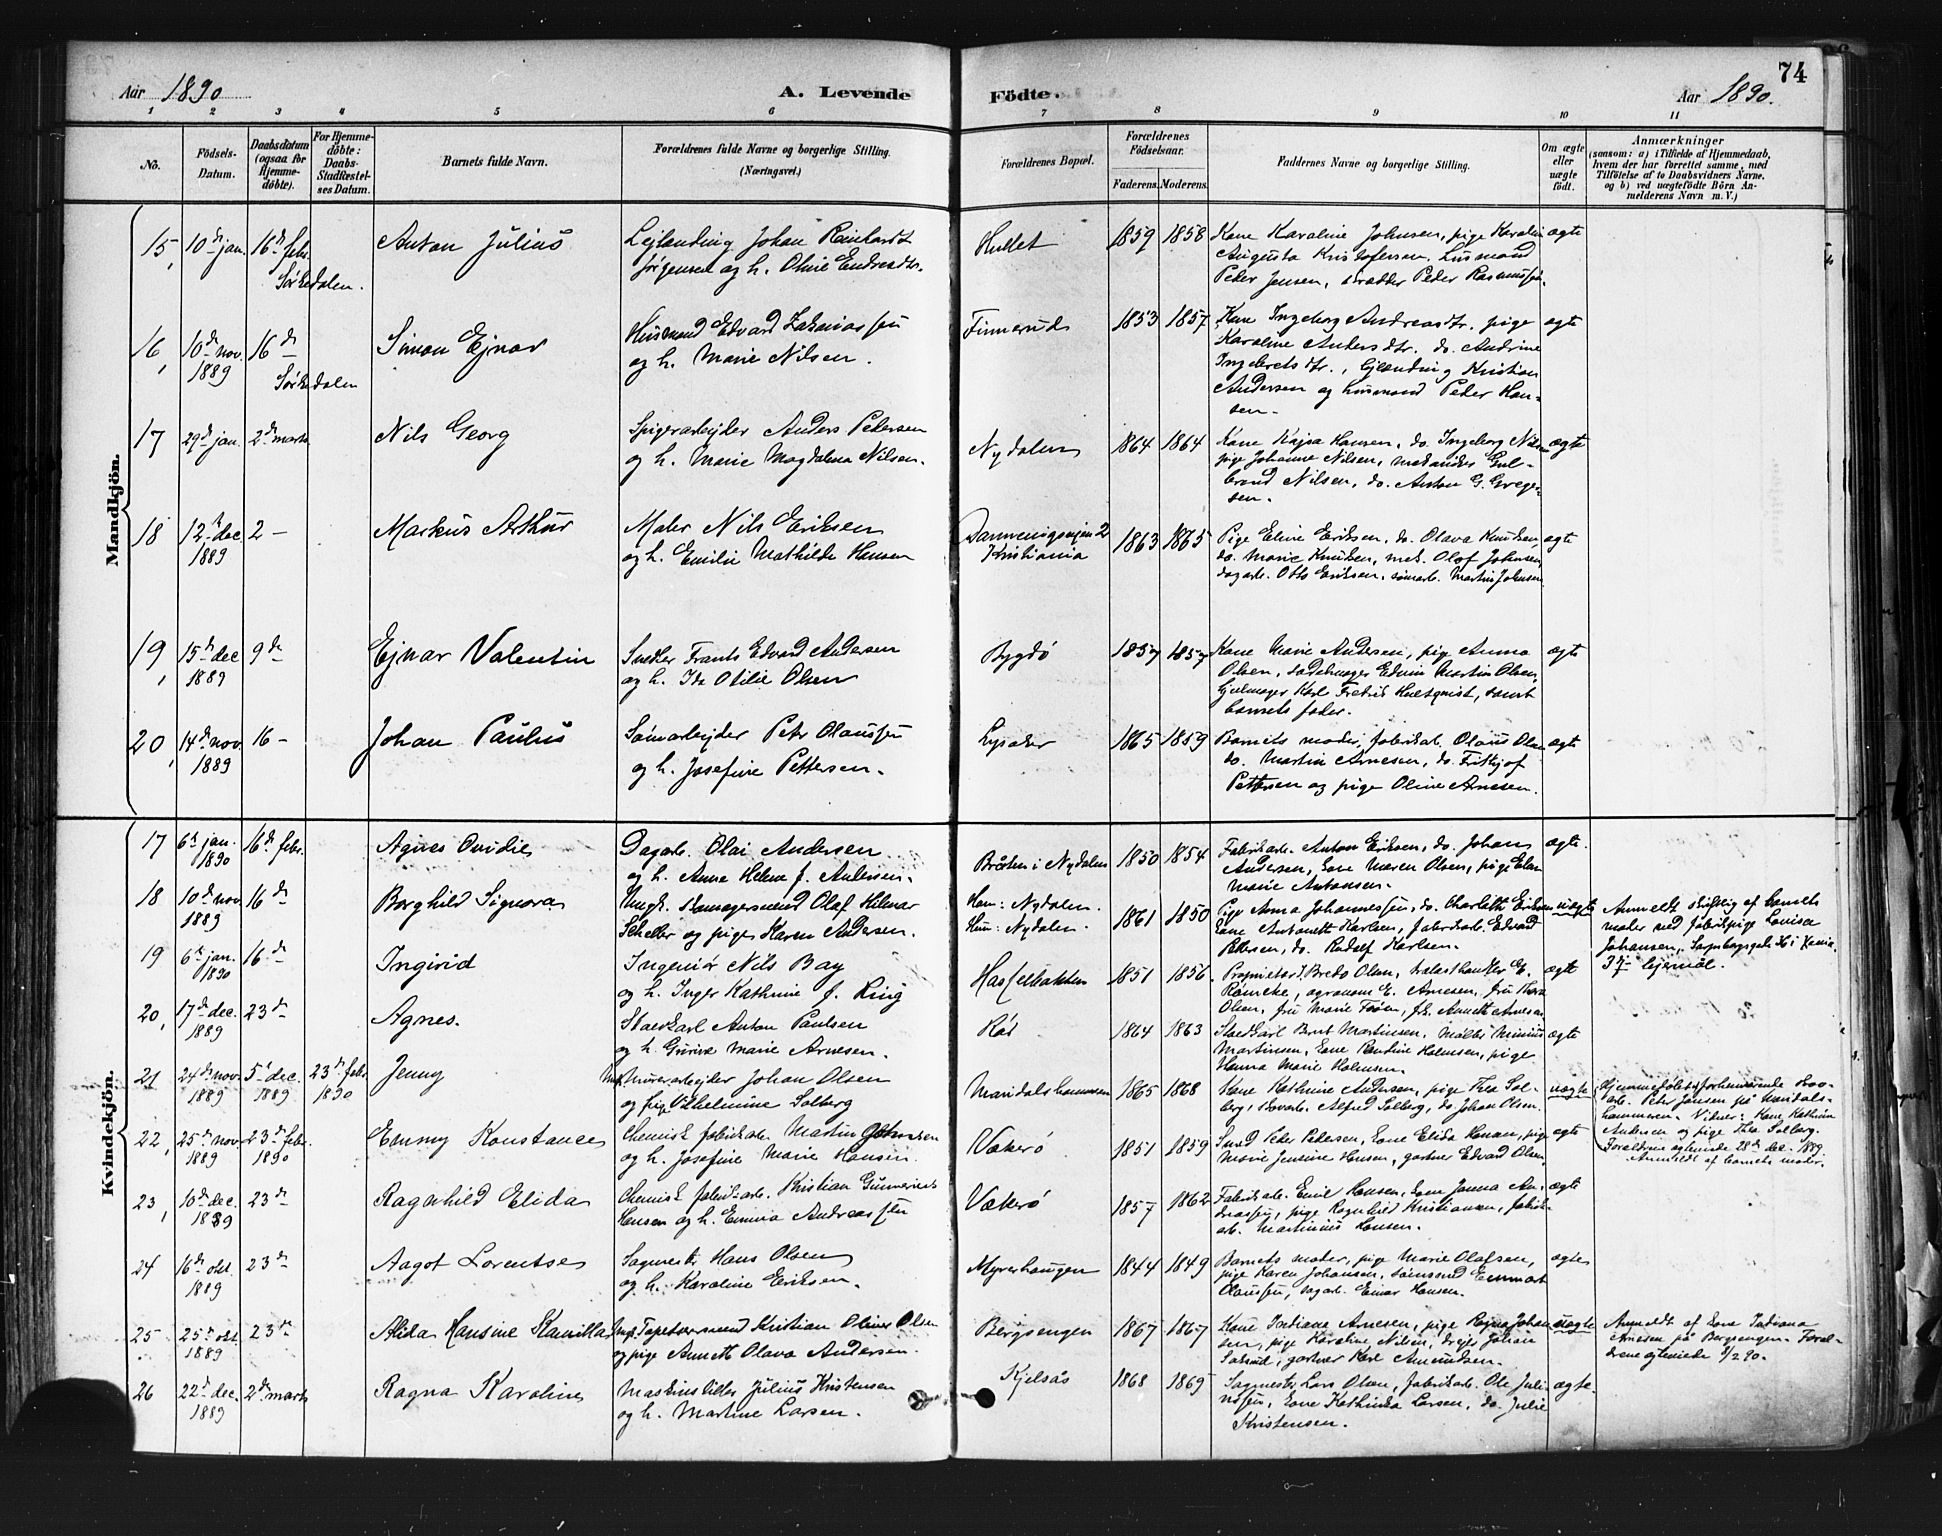 74
Aar 1890
A. Levende
Födte.
Aar 1890.
1 2 3 4 5 6 7 8 9 10 11
No.
Födsels-Datum.
Daabsdatum (ogsaa for Hjemme-döbte).
For Hjemme-döbte: Daabs-Stadfæstel-ses Datum.
Barnets fulde Navn.
Forældrenes fulde Navne og borgerlige Stilling. (Næringsvei.)
Forældrenes Bopæl.
Forældrenes Födselsaar.
Faderens. Moderens.
Faddernes Navne og borgerlige Stilling.
Om ægte eller uægte födt.
Anmærkninger
(saasom: a) i Tilfælde af Hjemmedaab,
hvem der har forrettet samme, med
Tilföielse af to Daabsvidners Navne,
og b) ved uægtefödte Börn An-
melderens Navn m. V.)
Mandkjön.
15, 10de jan. 16de febr. Sørkedalen. Anton Julius
Lejlending Johan Reinhardt
Jørgensen og h. Oline Endresdtr.
Hullet 1859 1858
Kone Karoline Johnsen, pige Karolin
Augusta Kristofersen, husmand
Peder Jensen, Peder Rasmussen.
ægte
16, 10de nov. 1889 16de Sørkedalen Simon Ejnar
Husmand Edvard Zakariassen
og h. Marie Nilsen.
Finnerud 1853 1857
Kone Ingeborg Andreasdtr. pige
Karoline Andersdtr. do. Andrine
Ingebretsdtr., lejlending Kristian
Andersen og husmand Peder Han-
sen.
ægte
17 29de jan. 2de marts Nils Georg
Spigerarbejder Anders Petersen
og h. Marie Magdalena Nilsen.
Nydalen 1864 1864
Kone Kajsa Hansen, do. Ingeborg Nilsen
pige Johanne Nilsen, mekaniker Gul-
brand Nilsen, do. Anton G. Greger-
sen.
ægte
18 12te dec. 1889 2 - Markus Arthur
Maler Nils Eriksen
og h. Emilie Mathilde Hansen
Kristiania 1863 1865
Pige Eline Eriksen, do. Olava Knudsen,
do. Marie Knudsen, mek. Olaf Johansen
dagarb. Otto Eriksen, sömarb. Martin Johnsen
ægte
19, 15de dec 1889 9de Ejnar Valentin
Snedker Frants Edvard Andersen
og h. Ida Otilie Olsen
Bygdö 1857 1857
Kone Marie Andersen, pige Anna
Olsen, sadelmager Edvin Martin Olsen,
hjulmager Karl Fredrik Hultqvist, samt
barnets fader.
ægte
20, 14de nov. 1889 16 - Johan Paulus
Sömarbejder Peter Olaussen
og h. Josefine Pettersen.
Lysaker 1865 1859
Barnets moder, fabrikarb. Olaus Olsen
do. Martin Arnesen, do. Frithjof
Pettersen og pige Oline Arnesen.
ægte
Kvindekjön.
17 6te jan. 1890 16de febr. Agnes Ovidie
Dagarb. Olai Andersen
og h. Anne Helene f. Andersen.
Bråten i Nydalen 1850 1854
Fabrikarb. Anton Eriksen, do. Johan
Andersen, kone Maren Olsen, pige Elen
Marie Antonsen.
ægte.
18 10de nov 1889 16de Borghild Signora
Ungk. Olaf Hilmar
Scheller og pige Karen Andersen.
Ham: Nydalen.
Hun: Nydalen. 1861 1850
Pige Anna Johannessen, do. Charlotte Eriksen
kone Antonette Karlsen, fabrikarb. Edvard
Petersen, do. Rudolf Karlsen.
uægte
Anmeldt skriftlig af barnets
moder ved fabrikpige Lovisa
Johansen,
19 6te jan. 1890 16de Ingirid
Ingeniör Nils Bay
og h. Inger Kathrine f. Ring
Hasselbakken 1851 1856
Proprietær Bredo Olsen, E.
agronom E. Arnesen, fru Thora
Olsen, fru Marie Fröen, frk. Annette Arnesen
ægte
20, 17de dec. 1889 23de Agnes.
Staldkarl Anton Paulsen
og h. Gurine Marie Arnesen.
Röd 1864 1863
Staldkarl Bernt Martinsen,
Martinsen, kone Pauline Halvorsen, pige
Hanna Marie Halvorsen.
ægte
21 24de nov. 1889 5te dec. 1889 23de febr. 1890 Jenny
Ungk. Murerarbejder Johan Olsen
og pige Vilhelmine Solberg
Maridalshammeren 1865 1868
Kone Kathrine Andersen, pige Thea Sol-
berg, Alfred Solberg, do. Johan Olsen.
uægte
Hjemmedöbt af forhenværende
Peter Jansen på Maridals-
hammeren. Vidner: Kone Kathrine
Andersen og pige Thea Solberg.
Forældrene ægteviede 28de dec. 1889.
Anmeldt af barnets moder.
22, 25de nov. 1889 23de febr. 1890 Emmy Konstance
Chemisk fabrikarb. Martin Johnsen
og h. Josefine Marie Hansen.
Vækerö 1851 1859
Smed Peter Petersen, kone Elida Hansen, pige
Marie Jensine Hansen, gartner Edvard Olsen.
ægte
23, 10de dec. 1889 23de Ragnhild Elida
Chemisk fabrikarb. Kristian Gunnerius
Hansen og h. Emma Andreassen
Vækerö 1857 1862
Fabrikarb. Emil Hansen, kone Janna An-
dreassen, pige Ragnhild Kristiansen, fabrik-
arb. Martinius Hansen.
ægte
24 16de okt. 1889 23de Aagot Lorentse
Sagmester Hans Olsen
og h. Karoline Eriksen.
Myrerhaugen 1844 1849
Barnets moder, pige Marie Olafsen,
pige Karen Johansen,
Olaussen, dagarb. Einar Hansen.
ægte
25 25de okt 1889 23de Alida Hansine Kamilla
Ungk. Tapetsersvend Kristian Oliver Olsen
og pige Annette Olava Andersen.
Bergsengen 1867 1867
Kone Tatiana Arnesen, pige Ragna Johan-
sen, pige Karoline Nilsen, drejer Johan
gartner Karl Amundsen.
uægte
Anmeldt af kone Tatiana
Arnesen på Bergsengen. Foræl-
drene ægteviede 8/2 90.
26 22de dec. 1889 2de marts Ragna Karoline
Maskinstiller Julius Kristensen
og h. Martine Larsen.
Kjelsås 1868 1869
Sagmester Lars Olsen, fabrikarb. Ole Juli-
ussen, kone Kathinka Larsen, do. Julie
Kristensen.
ægte.